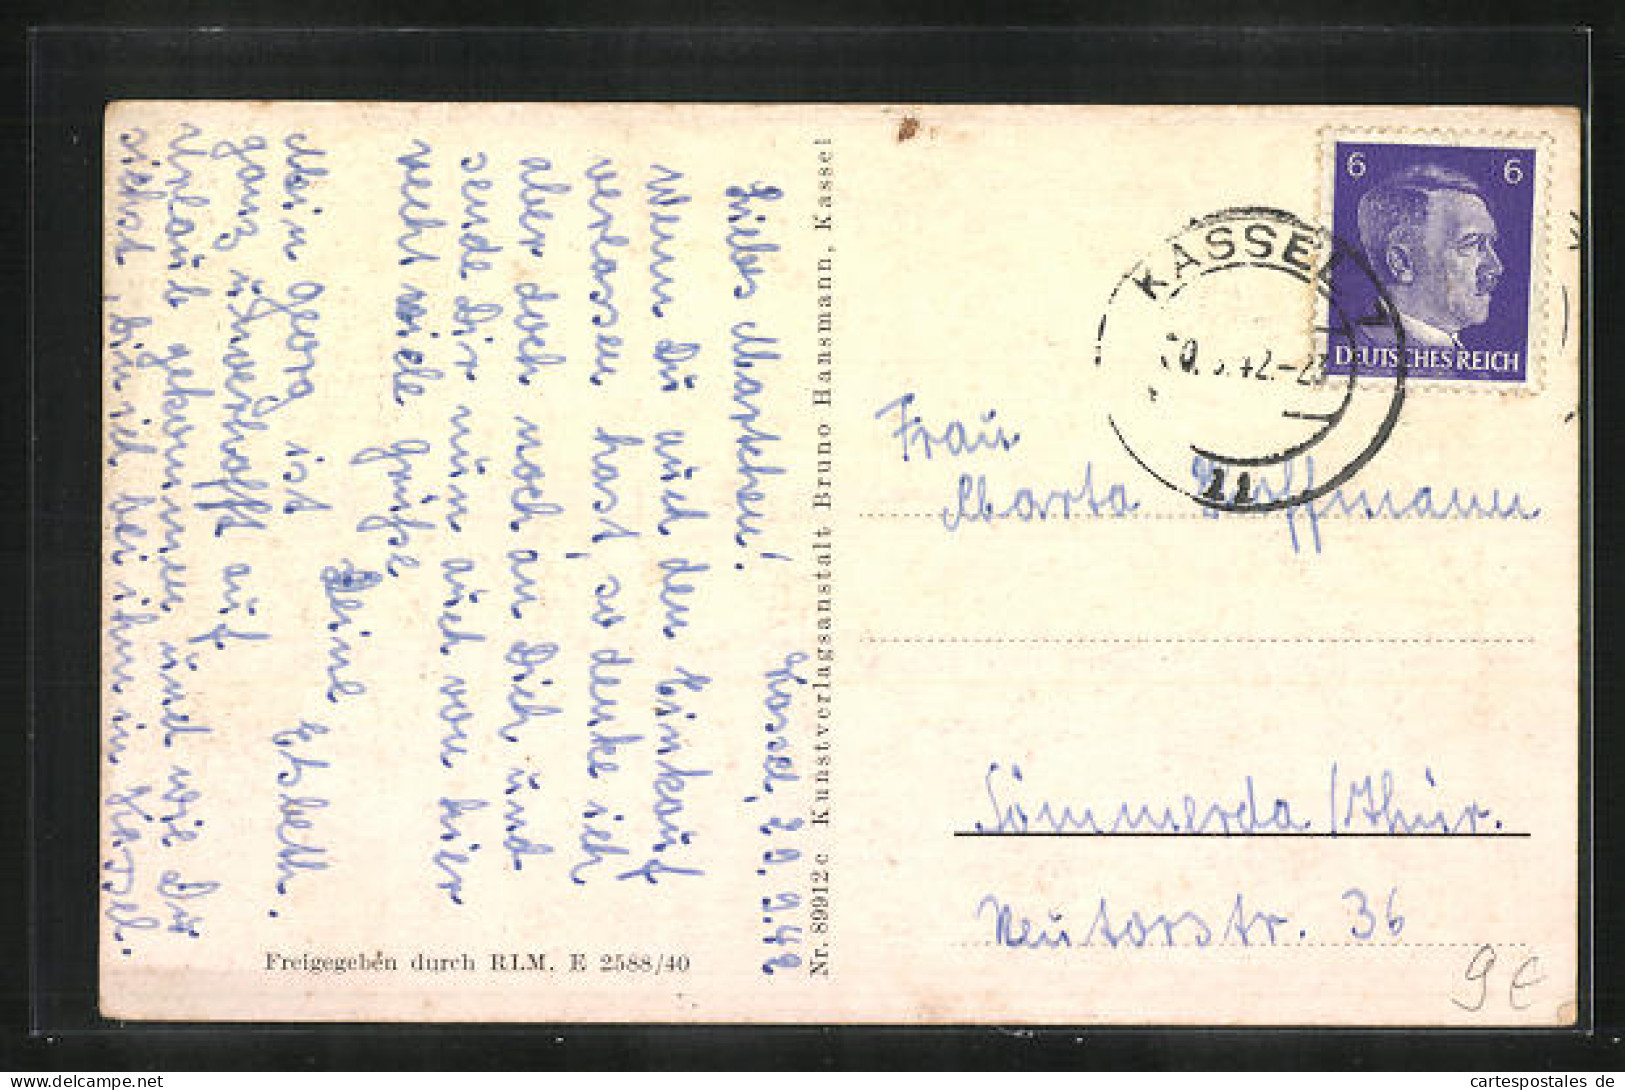 Kassel, 20.9.42
Liebes Martchen!
Wenn Du auch den Einkauf
verlassen hast, so denke ich
aber doch noch an Dich und
sende Dir nun auch von hier
recht viele Grüße
Deine Elsbeth.
Mein Georg ist
ganz unverhofft auf
Urlaub gekommen und wie Du
siehst, bin ich bei ihm in Kassel.
Freigegeben durch RLM. E 2588/40
Nr. 89912c Kunstverlagsanstalt Bruno Hansmann, Kassel
6 6
DEUTSCHES REICH
KASSEL 7
.42.-23
11
Frau
Marta Hoffmann
Sömmerda /Thür.
Neutorstr. 36
9 €
www.cartespostales.de